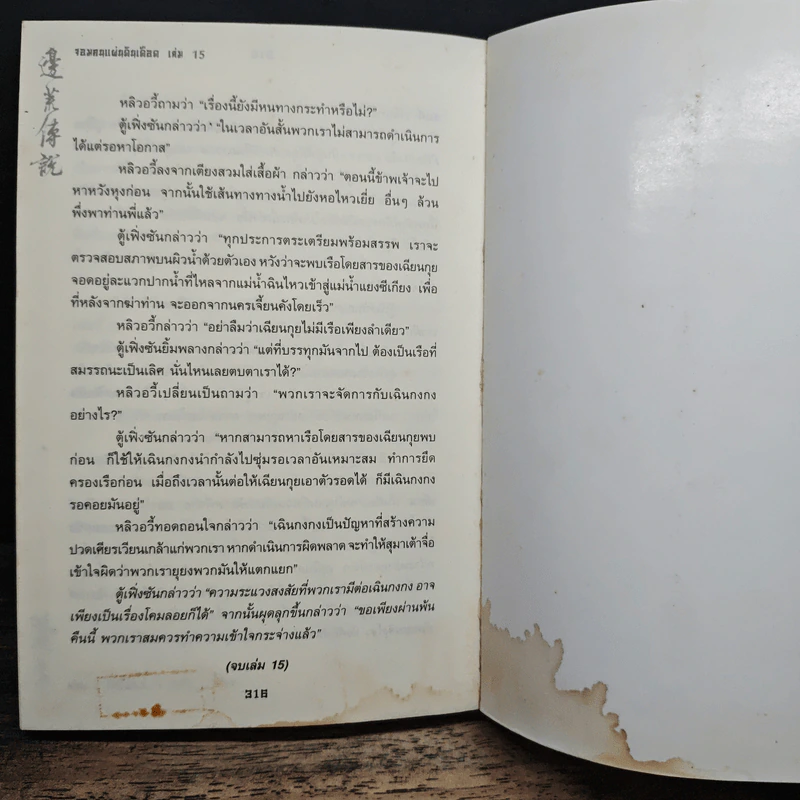 จอมคนแผ่นดินเดือด เล่ม 15
邊荒傳說
หลิวอวี้ถามว่า “เรื่องนี้ยังมีหนทางกระทำหรือไม่?”
ตู้เฟิ่งซันกล่าวว่า “ในเวลาอันสั้นพวกเราไม่สามารถดำเนินการ
ได้แต่รอหาโอกาส”
หลิวอวี้ลงจากเตียงสวมใส่เสื้อผ้า กล่าวว่า “ตอนนี้ข้าพเจ้าจะไป
หาหวังหุงก่อน จากนั้นใช้เส้นทางทางน้ำไปยังหอไหวเยี่ย อื่นๆ ล้วน
พึ่งพาท่านพี่แล้ว”
ตู้เฟิ่งซันกล่าวว่า “ทุกประการตระเตรียมพร้อมสรรพ เราจะ
ตรวจสอบสภาพบนผิวน้ำด้วยตัวเอง หวังว่าจะพบเรือโดยสารของเฉียนกุย
จอดอยู่ละแวกปากน้ำที่ไหลจากแม่น้ำฉินไหวเข้าสู่แม่น้ำแยงซีเกียง เพื่อ
ที่หลังจากฆ่าท่าน จะออกจากนครเจี้ยนคังโดยเร็ว”
หลิวอวี้กล่าวว่า “อย่าลืมว่าเฉียนกุยไม่มีเรือเพียงลำเดียว”
ตู้เฟิ่งซันยิ้มพลางกล่าวว่า “แต่ที่บรรทุกมันจากไป ต้องเป็นเรือที่
สมรรถนะเป็นเลิศ นั่นไหนเลยตบตาเราได้?”
หลิวอวี้เปลี่ยนเป็นถามว่า “พวกเราจะจัดการกับเฉินกงกง
อย่างไร?”
ตู้เฟิ่งซันกล่าวว่า “หากสามารถหาเรือโดยสารของเฉียนกุยพบ
ก่อน ก็ใช้ให้เฉินกงกงนำกำลังไปซุ่มรอเวลาอันเหมาะสม ทำการยึด
ครองเรือก่อน เมื่อถึงเวลานั้นต่อให้เฉียนกุยเอาตัวรอดได้ ก็มีเฉินกงกง
รอคอยมันอยู่”
หลิวอวี้ทอดถอนใจกล่าวว่า “เฉินกงกงเป็นปัญหาที่สร้างความ
ปวดเศียรเวียนเกล้าแก่พวกเรา หากดำเนินการผิดพลาด จะทำให้สุมาเต้าจื่อ
เข้าใจผิดว่าพวกเรายุยงพวกมันให้แตกแยก”
ตู้เฟิ่งซันกล่าวว่า “ความระแวงสงสัยที่พวกเรามีต่อเฉินกงกง อาจ
เพียงเป็นเรื่องโคมลอยก็ได้” จากนั้นผุดลุกขึ้นกล่าวว่า “ขอเพียงผ่านพ้น
คืนนี้ พวกเราสมควรทำความเข้าใจกระจ่างแล้ว”
(จบเล่ม 15)
316